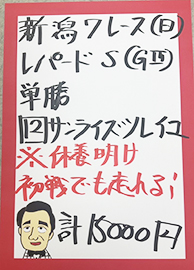 新潟7レース(日)
レパードS(GⅢ)
単勝
12サンライズソレイユ
※休養明け
初戦でも走れる!
計15000円